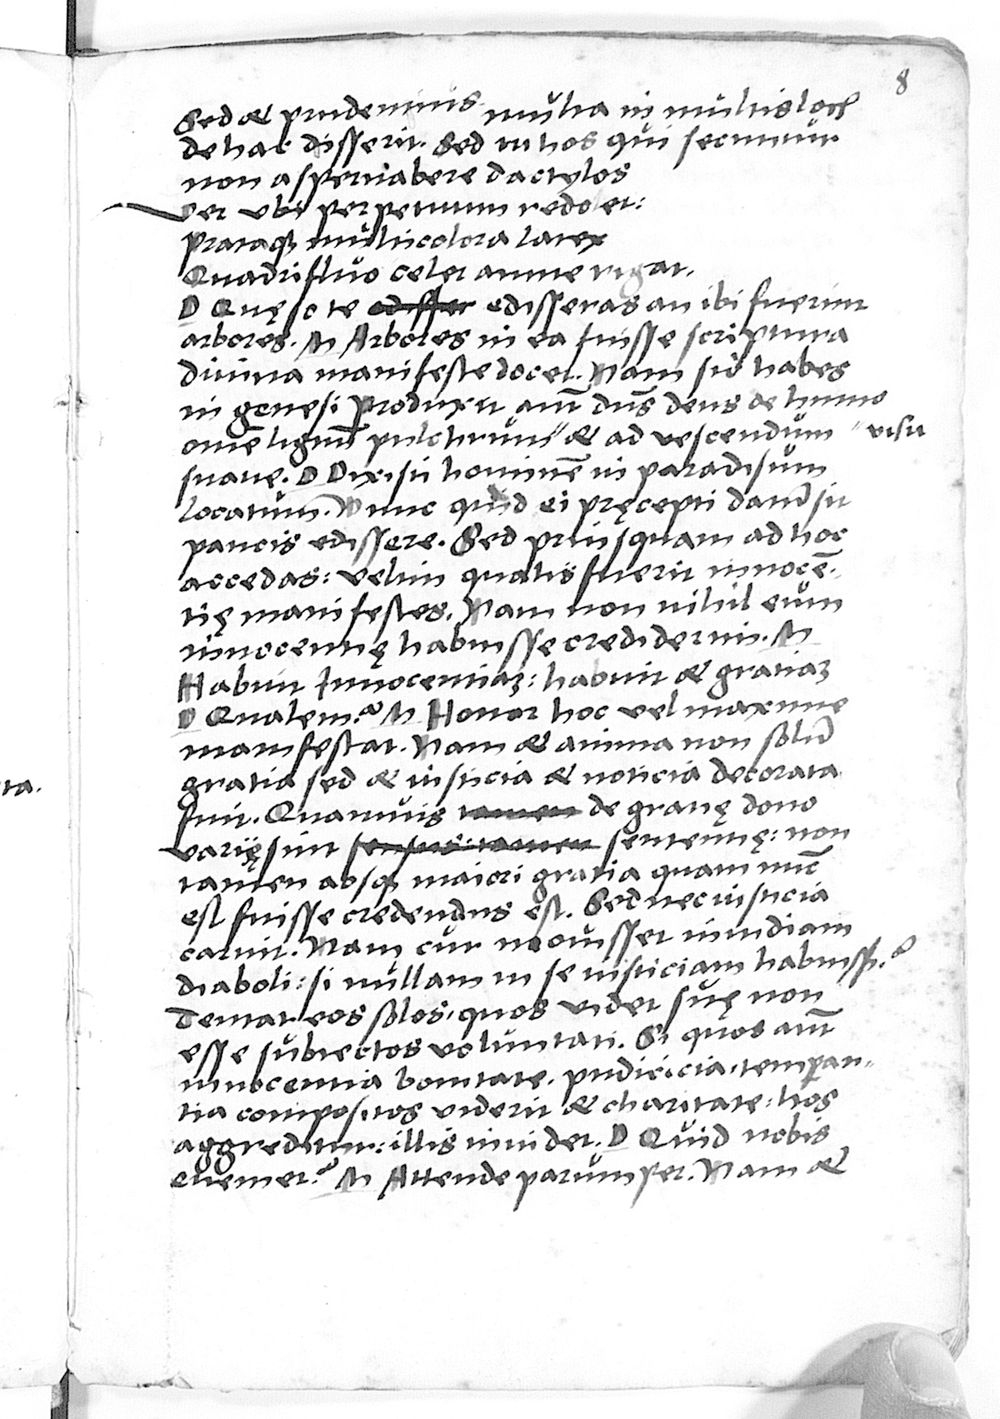 8
Sed & prudentius multa in multis locꝭ
de hac disserit. Sed tu hos qui secuntur
non aspernabere dactylos
Ver ubi perpetuum redolet:
Prataqꝫ multicolora latex
Quadrifluo celer amne rigat.
D Quęso te edisser edisseras an ibi fuerint
arbores. M Arbores in ea fuisse scriptura
diuina manifeste docet. Nam sic habes
in genesi Produxit aūt dūs deus de humo
omē lignū pulchrum " & ad vescendum " visu
suaue. D Dixisti hominē in paradisum
locatum. Nunc quid ei pręcepti datū sit
paucis edissere. Sed priusquam ad hoc
accedas: velim qualis fuerit innocē-
tię manifestes. Nam non nihil eum
innocentię habuisse crediderim. M
Habuit Innocentiaꝫ: habuit & gratiaꝫ
D Qualem? M Honor hoc vel maxime
manifestat. Nam & anima non solū
gratia sed & iusticia & noticia decorata
ta.
fuit. Quamuis tamen de gratię dono
varięsint sensus: tamen sententię: non
tamen absqꝫ maiori gratia quam nūc
est fuisse credendus est. Sed nec iusticia
caruit. Nam cur mouisset inuidiam
diaboli: si nullam in se iusticiam habuisset?
Temtat eos solos, quos videt suę non
esse subiectos voluntati. Si quos aūt
innocentia bonitate. pudicicia, temperan-
tia compositos viderit & charitate: hos
aggreditur: illis inuidet. D Quid nobis
euenit? M Attende parumper. Nam &